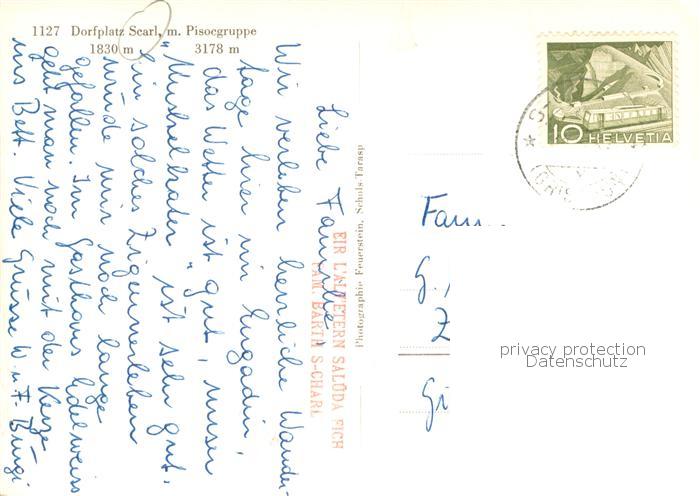 1127 Dorfplatz Scarl, m. Pisocgruppe
1830 m 3178 m
Liebe Familie!
Wir verleben herrliche Wander-
tage hier im Engadin,
das Wetter ist gut, unser
"Muskelkater" ist sehr gut.
Ein solches Zigeunerleben
würde mir noch lange
gefallen. Im Gasthaus Edelweiss
geht man noch mit der Kerze
ins Bett. Viele Grüsse W. u. F. Bürgi
EIR L'ALVETERN SALÜDA EICH
FAM. BARTH S-CHARL
Photographie Feuerstein, Schuls-Tarasp
10 HELVETIA
Fam
G.,
Z
Gi
privacy protection
Datenschutz